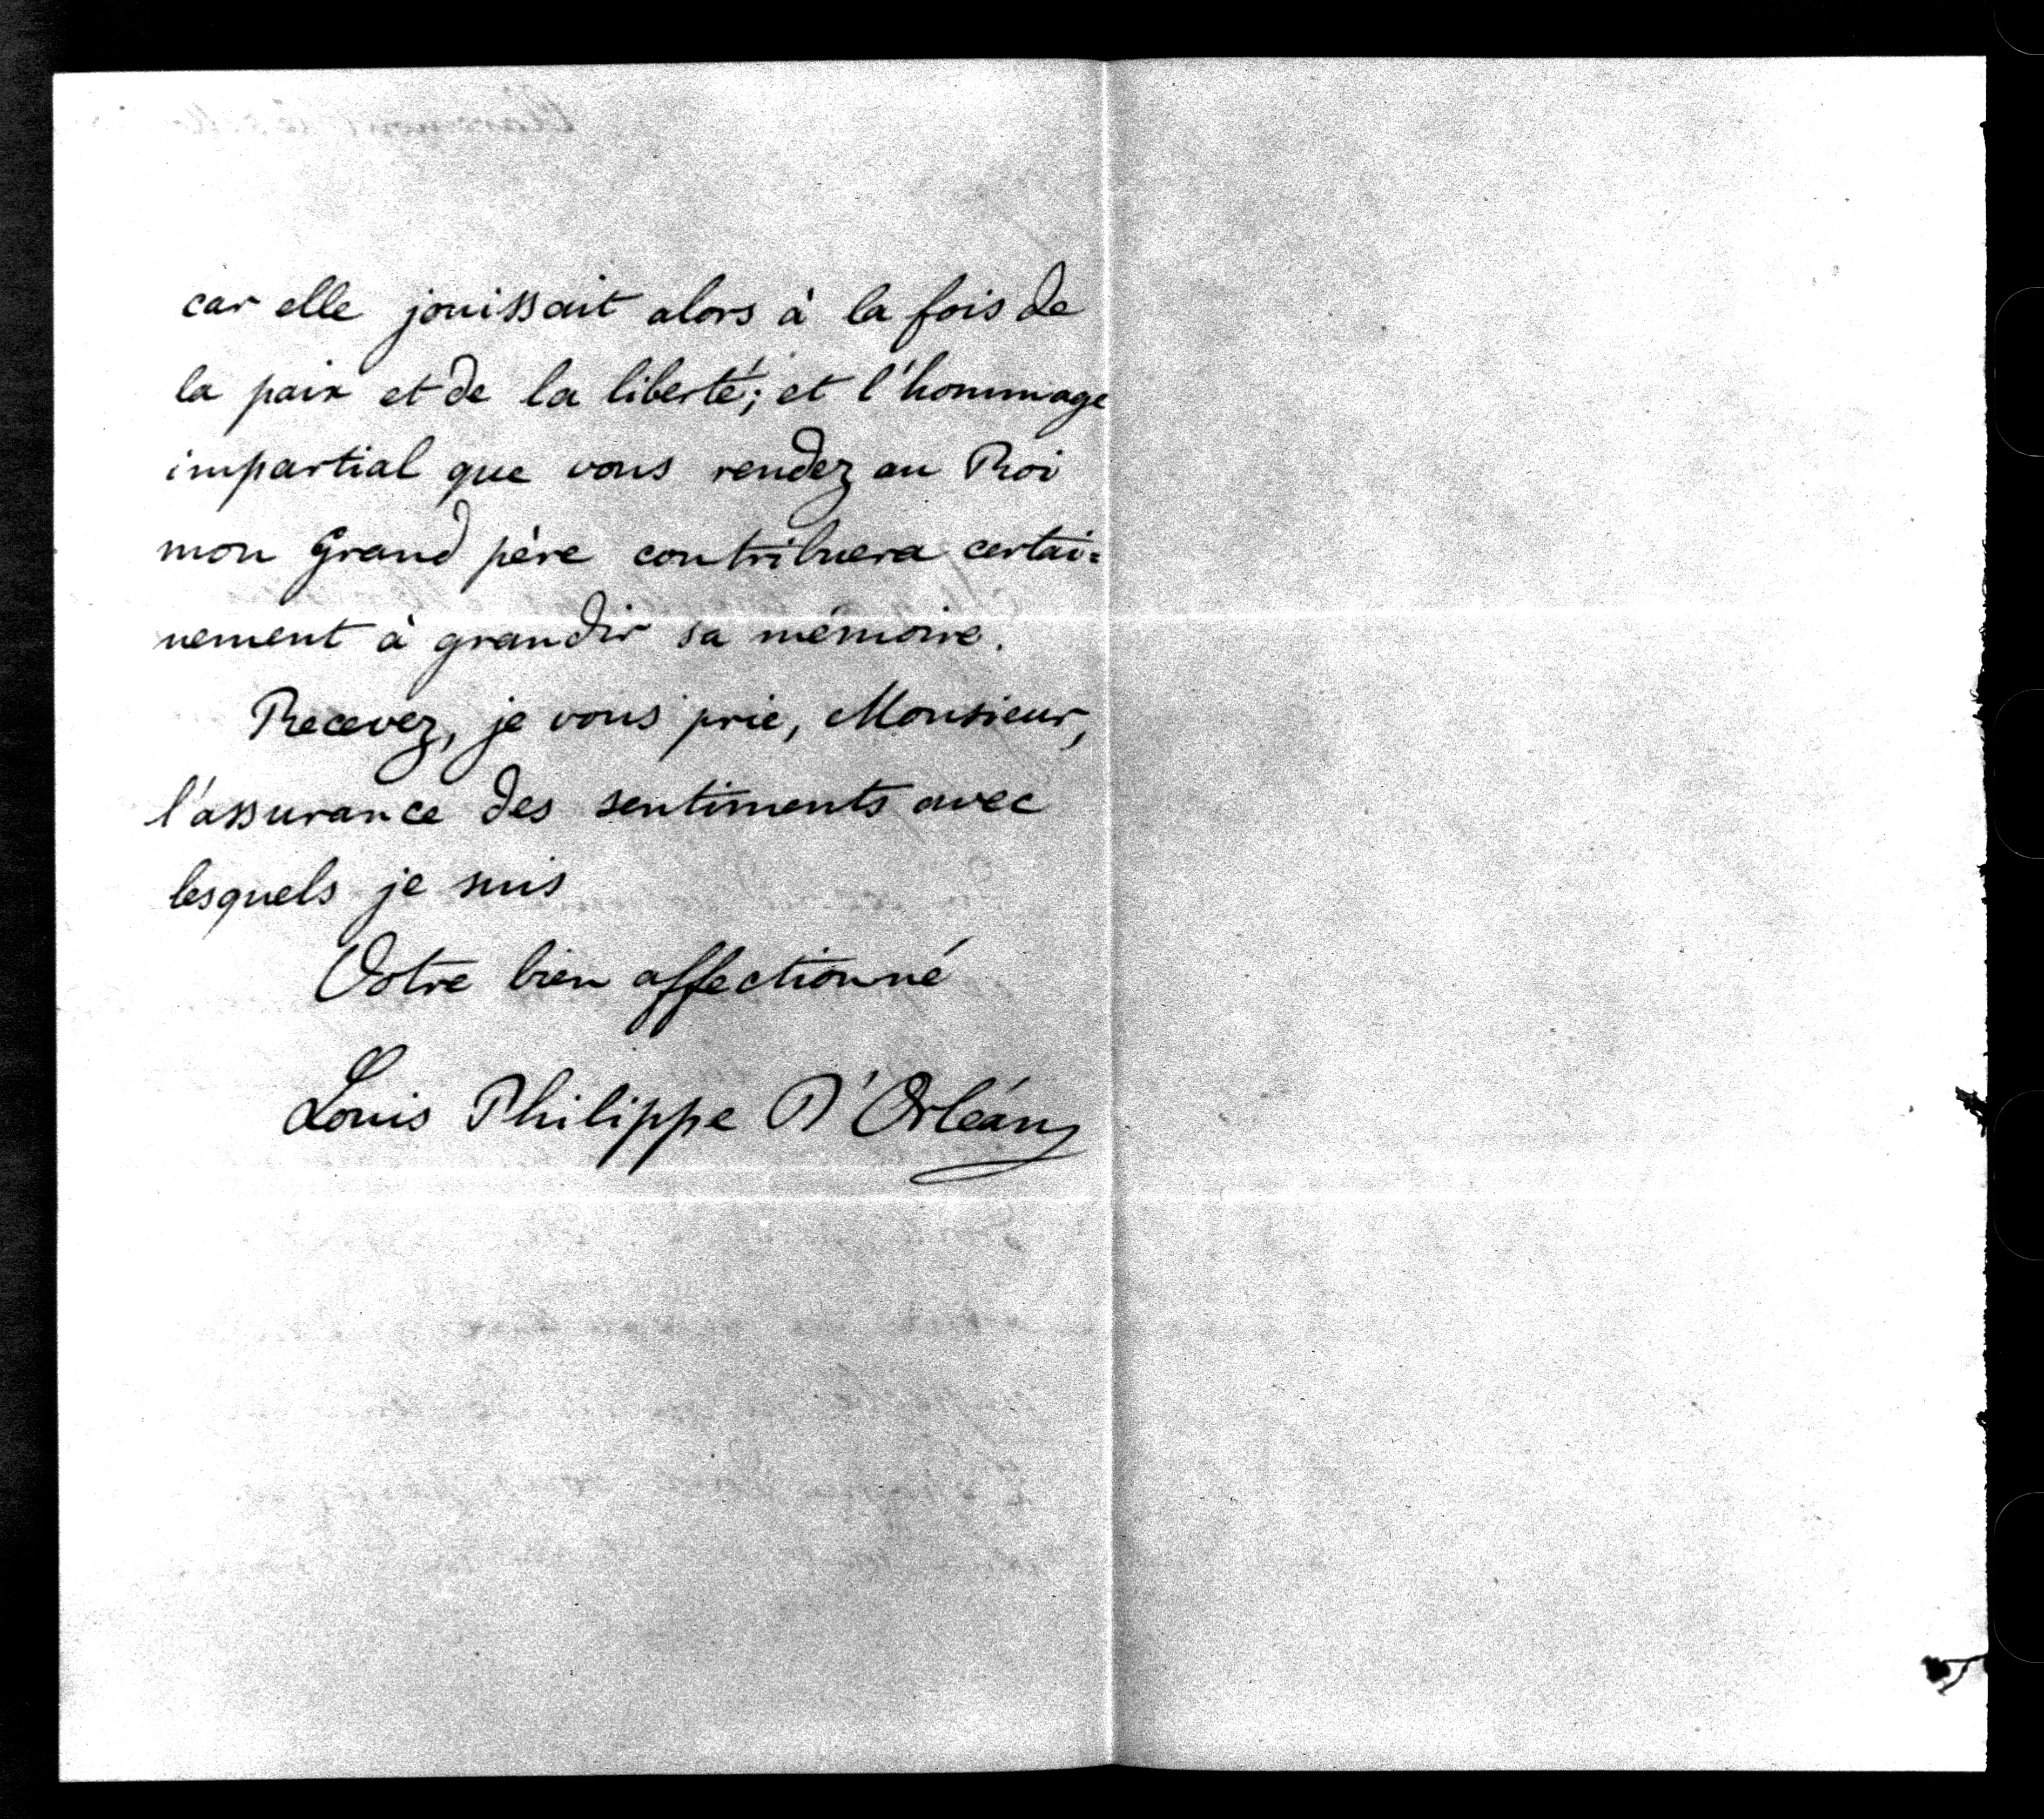 car elle jouissait alors à la fois de
la paix et de la liberté; et l'hommage
impartial que vous rendez au Roi
mon Grand père contribuera certai=
nement à grandir sa mémoire.
Recevez, je vous prie, Monsieur,
l'assurance des sentiments avec
lesquels je suis
Votre bien affectionné
Louis Philippe D'Orléans